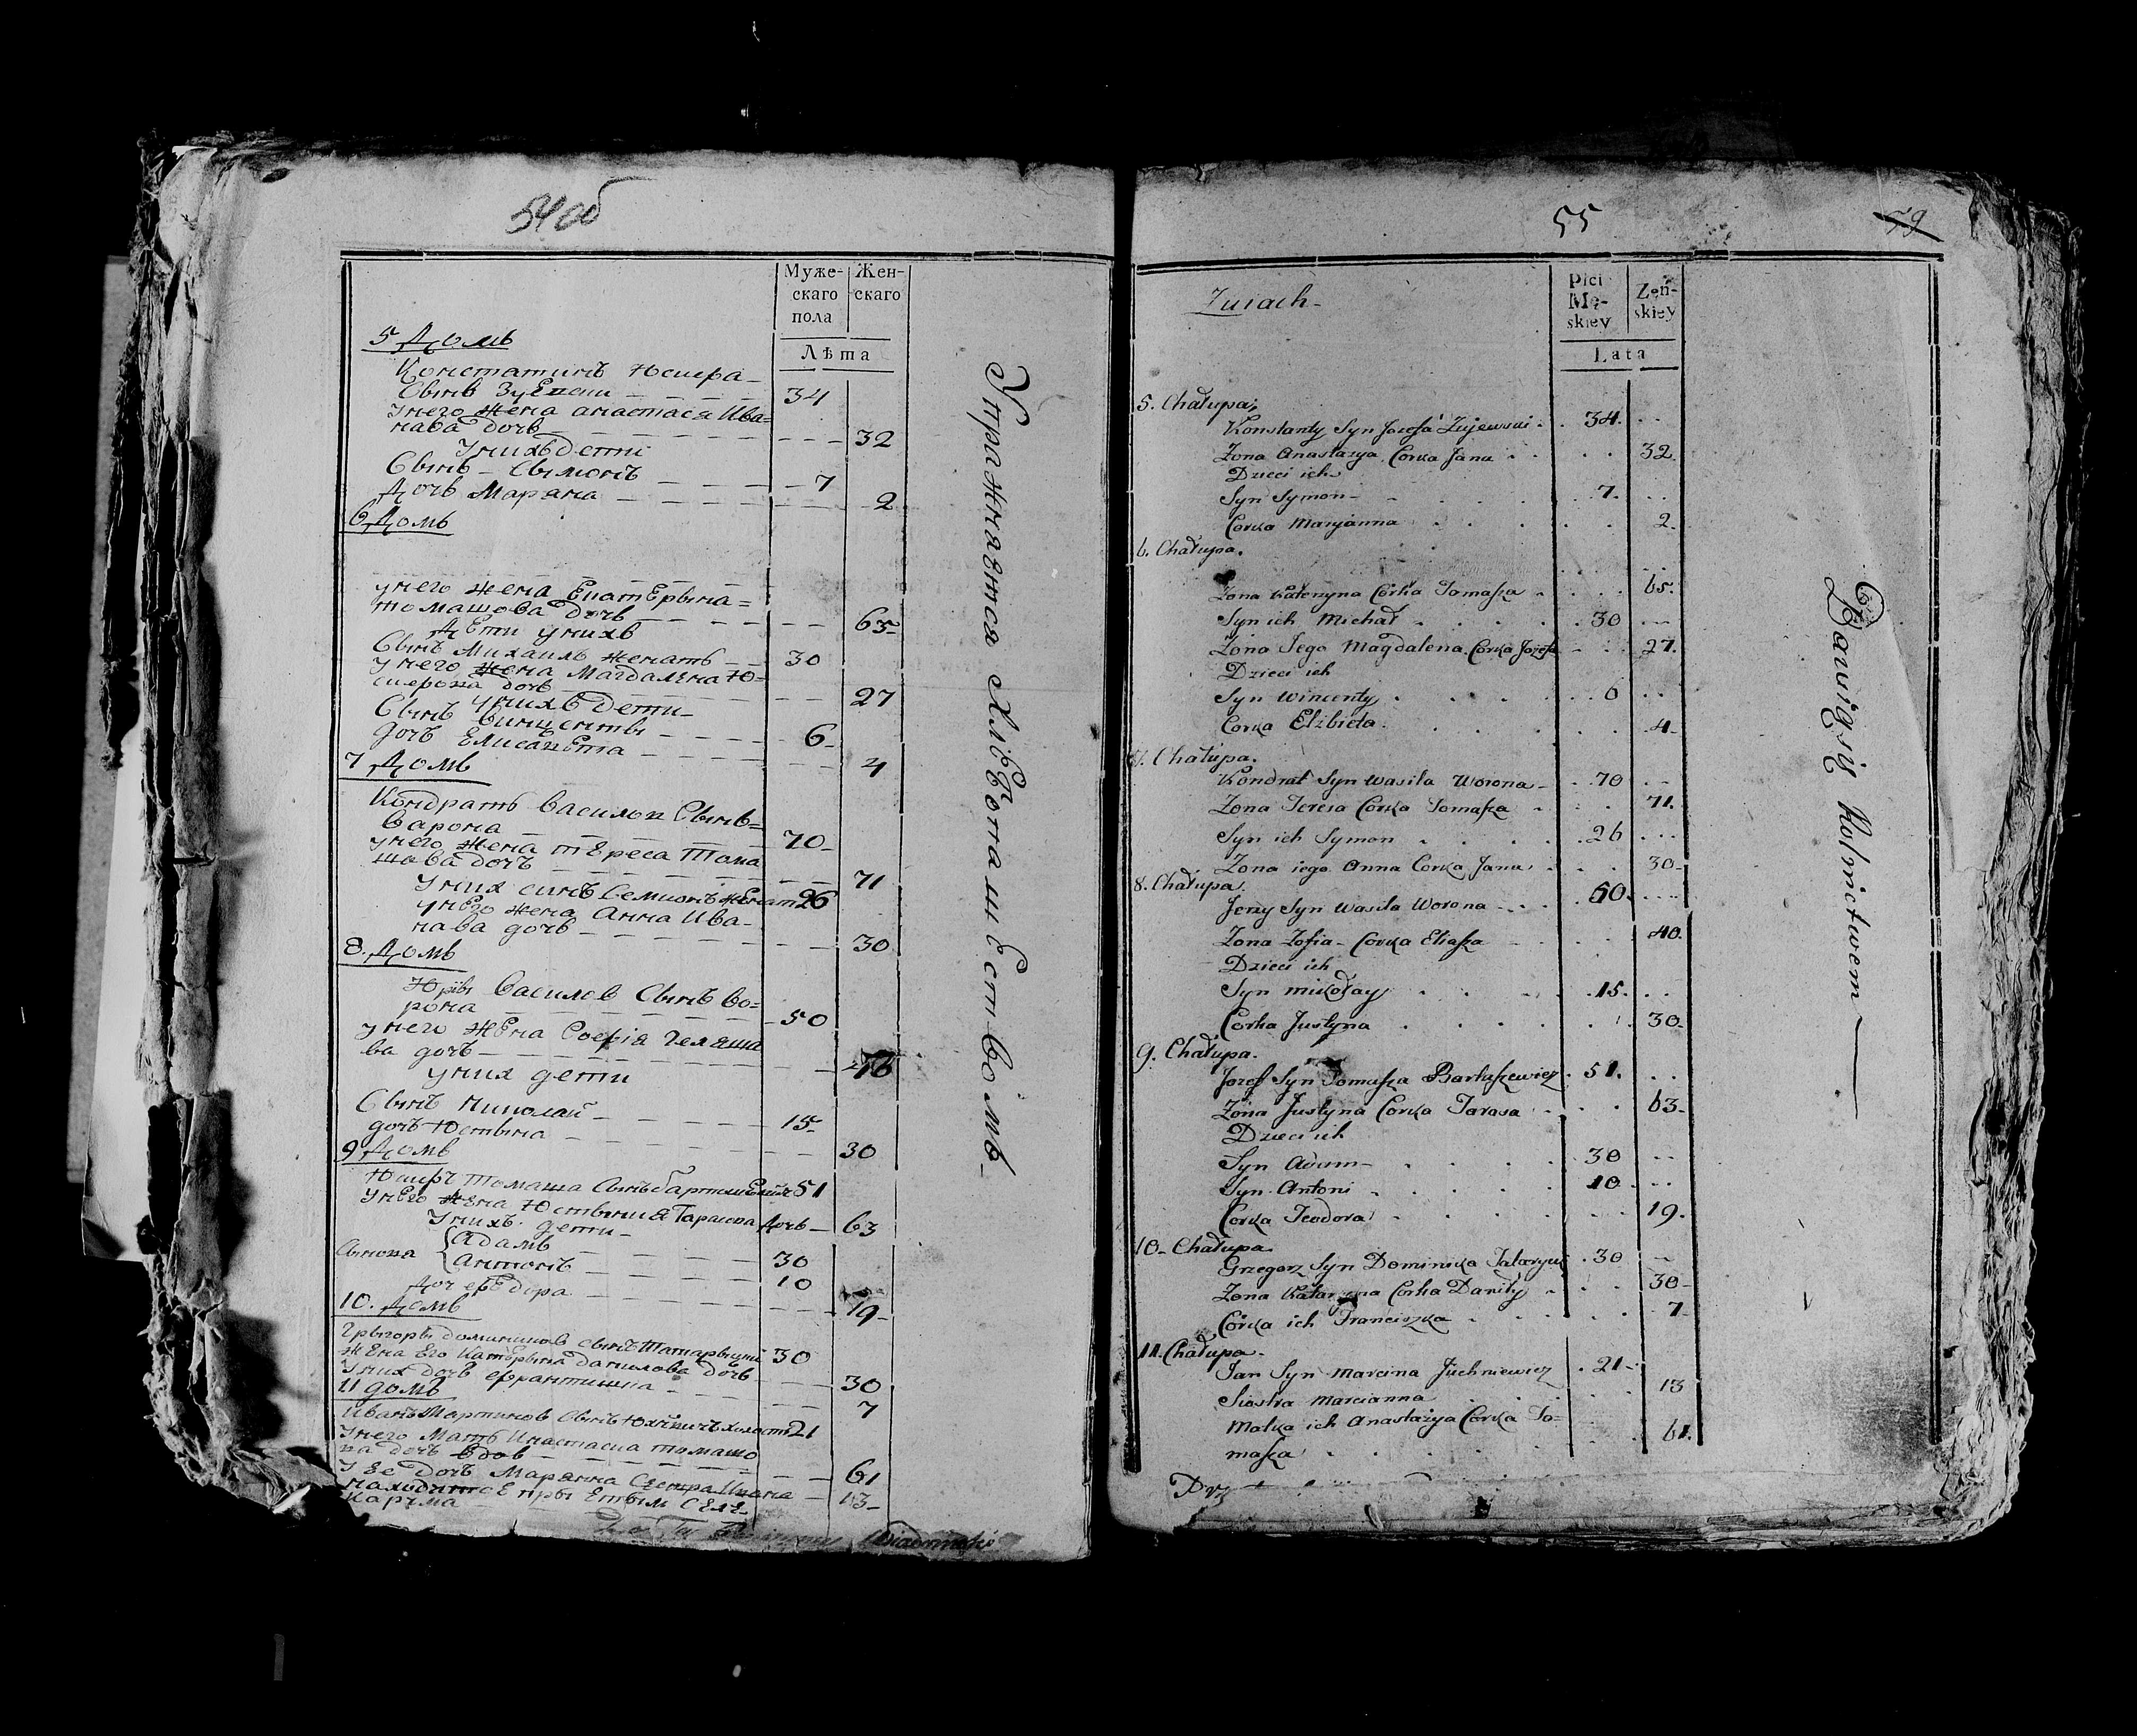 54 об
Муже-
скаго
пола
Жен-
скаго
Лѣта
5 Домъ
Константинъ Юсифа
Сынъ Зуевски 34
Унего Жена анастасия Ива=
нава дочь 32
Унихъ Дети
Сынъ Сымонъ 7
Дочь Марянна 2
6 Домъ
унего жена Екатерына=
томашова дочь 65
Дети унихъ
Сынъ Михаилъ женатъ 30
унего жена Магдалена Ю=
дочь 27
Унихъ дети
Сынъ Винценты 6
дочь Елисавета 4
7 Домъ
Кондратъ Василюв Сынъ=
Варона 70
унего жена тереса тома
шова дочь 71
Уних синъ Семионъ женат 26
унего жена Анна Ива-
нава дочь 30
8. Домъ
Юры Василов Сынъ Во=
рона 50
унего жена София Геляша
ва дочь
уних дети
Сынъ Николай 15
дочь Юстына 30
9 Домъ
Юзифъ томаша Сынъ 51
Унего жена Юстыния Тарасова дочь 63
Унихъ дети
Сынова Адамъ 30
Антонъ 10
Доч 19
10. Домъ
Грыгоръ домиников сынъ 30
жена его Катерына данилова дочь 30
Уних дочь франтишка 7
11 домъ
Иванъ Мартинов Сынъ холостъ 21
Унего Мать Инастасиа томашо
ва дочь вдов 61
У ее дочь Марянна 13
находитсе пры етым селе
Карчма
Упражняются хлебопашествомъ
55
79
Zuiach
Płci
Mę-
skiey
Żeń-
skiey
Lata
5. Chałupa
Konstanty Syn Jozefa Zujewski 34.
Zona Anastazya Corka Jana 32.
Dzieci ich
Syn Symon 7.
Corka Maryanna 2.
6. Chałupa.
Zona Katerzyna Corka Tomaſza 65.
Syn ich Michał 30
Zona Jego Magdalena Corka Jozefa 27.
Dzieci ich
Syn Wincenty 6
Corka Elżbieta 4
7. Chałupa.
Kondrat Syn Wasila Worona 70
Zona Teresa Corka Tomaſza 71.
Syn ich Symon 26
Zona iego Anna Corka Jana 30
8. Chałupa.
Jerzy Syn Wasila Worona 50.
Zona Zofia Corka Eliaſza 40.
Dzieci ich
Syn Mikołay 15.
Corka Justyna 30
9. Chałupa.
Jozef Syn Tomaſza Bartaſzewicz 51.
Zona Justyna Corka Tarasa 63
Dzieci ich
Syn Adam 30
Syn Antoni 10
Corka Teodora 19.
10. Chałupa
Grzegorz Syn Dominika 30
Zona Katarzyna Corka Daniły 30
Corka ich Franciszka 7
11. Chałupa.
Jan Syn Marcina Juchniewicz 21
Siostra Marcianna 13
Matka ich Anastazya Corka To=
maſza 61.
Bawiący się Rolnictwem